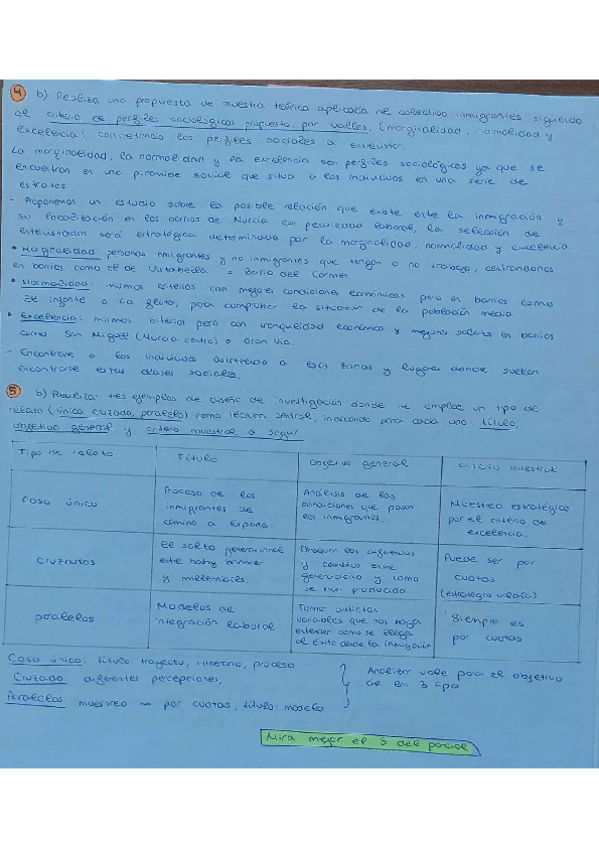 4 b) Realiza una propuesta de muestra teórica aplicada al colectivo inmigrantes siguiendo
el criterio de perfiles sociológicos propuesto por Valles, (marginalidad, normalidad y
excelencia), concretando los perfiles sociales a entrevistar.
La marginalidad, la normalidad y la excelencia son perfiles sociológicos ya que se
encuentran en una pirámide social que sitúa a los individuos en una serie de
estratos.
- Proponemos un estudio sobre la posible relación que existe entre la inmigración y
su localización en los barrios de Murcia con precariedad laboral, la selección de
entrevistados será estratégica determinado por la marginalidad, normalidad y excelencia.
• Marginalidad: personas inmigrantes y no inmigrantes que tengan o no trabajo, centrándonos
en barrios como el de Vistabella = Barrio del Carmen
• Normalidad: mismos criterios con mejores condiciones económicas pero en barrios como
el Infante o La Flota, para comprobar la situación de la población media.
• Excelencia: mismos criterios pero con tranquilidad económica y mejores salarios en barrios
como San Miguel (Murcia centro) o Gran Vía.
- Encontraré a los individuos asistiendo a esas zonas y lugares donde suelen
encontrarse estas clases sociales.
5 b) Realiza tres ejemplos de diseño de investigación donde se emplee un tipo de
relato (único, cruzado, paralelo) como técnica central, indicando para cada uno título,
objetivo general y criterio muestral a seguir.
Tipo de relato Título Objetivo general Criterio muestral
Caso único Proceso de los inmigrantes de camino a España. Análisis de las condiciones que pasan los inmigrantes. Muestreo estratégico por el criterio de excelencia.
Cruzados El salto generacional entre baby boomer y millennials. las diferencias y cambios entre generaciones y como se han producido. Puede ser por cuotas
paralelos Modelos de integración laboral. Tomar distintas variables que nos hagan entender como se llega al éxito desde la inmigración Siempre es por cuotas
Caso único: título trayecto, itinerario, proceso
Cruzado: diferentes percepciones.
Paralelos muestreo por cuotas, título: modelo
Analizar vale para el objetivo
de los 3 tipos
Mira mejor el 3 del parcial